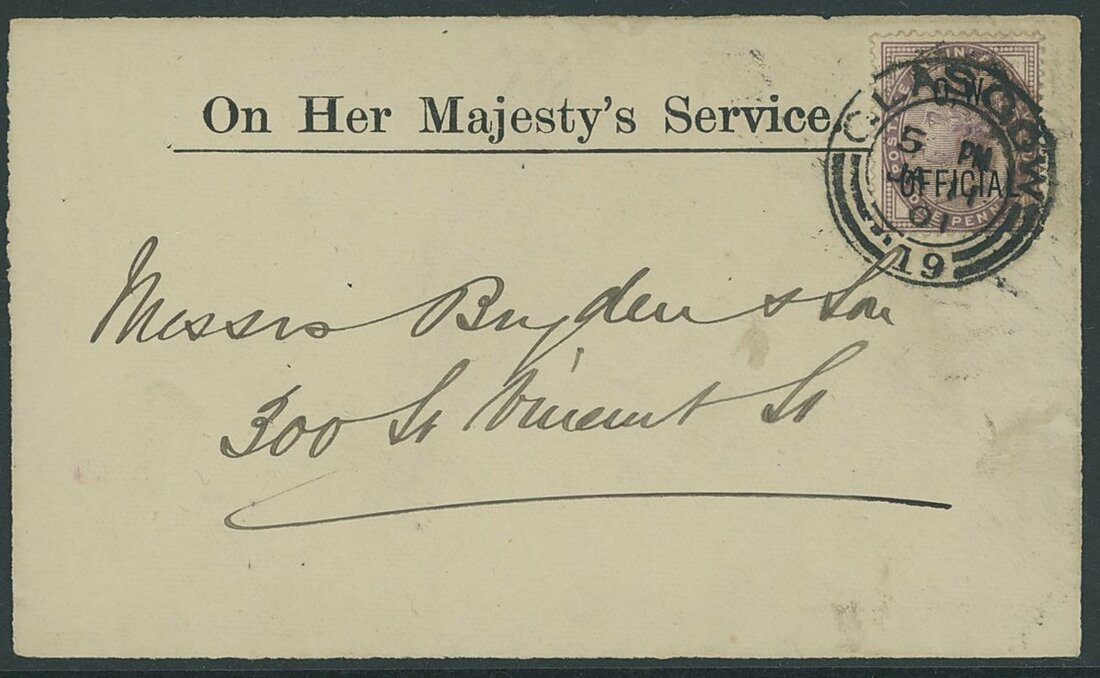 On Her Majesty's Service.
GLASGOW
5 PM
JA 11
01
19
OFFICIAL
Messrs Bryden & Son
300 St Vincent St